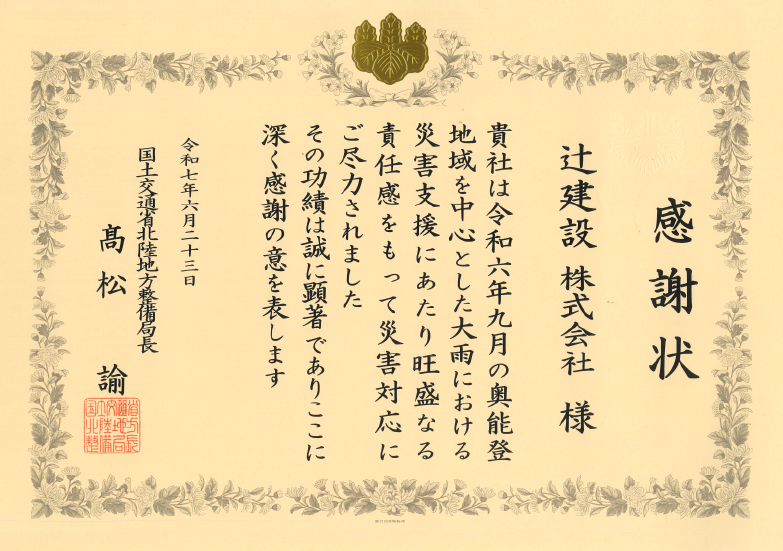 感謝状
辻建設 株式会社 様
貴社は令和六年九月の奥能登
地域を中心とした大雨における
災害支援にあたり旺盛なる
責任感をもって災害対応に
ご尽力されました
その功績は誠に顕著でありここに
深く感謝の意を表します
令和七年六月二十三日
国土交通省北陸地方整備局長
髙松 諭